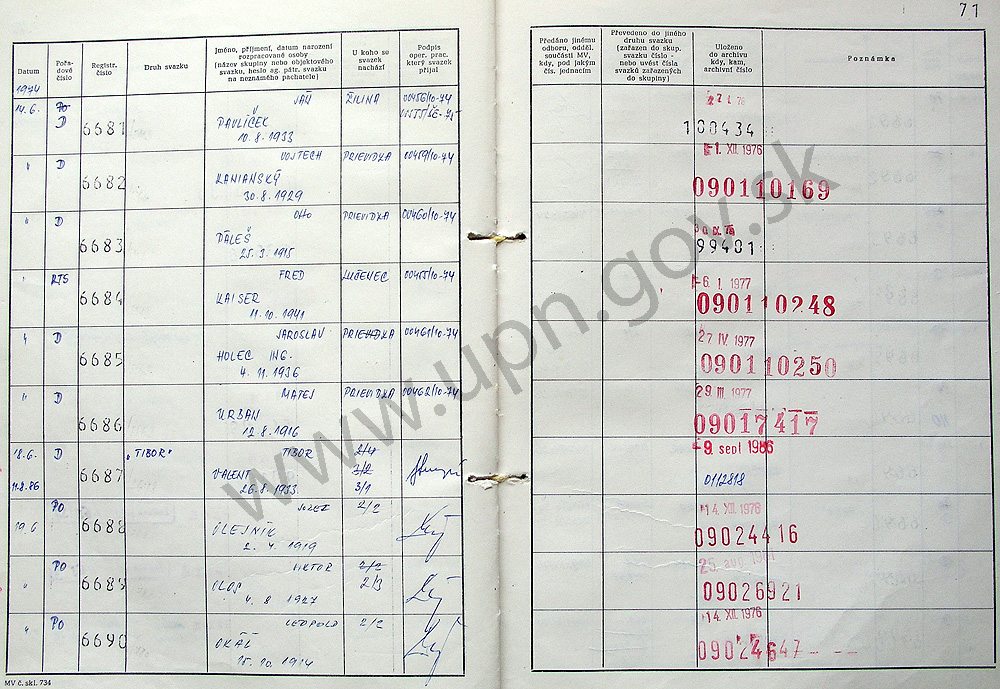 71
Datum
Pořa-
dové
číslo
Registr.
číslo
Druh svazku
Jméno, příjmení, datum narození
rozpracované osoby
(název skupiny nebo objektového
svazku, heslo ag. pátr. svazku
na neznámého pachatele)
U koho se
svazek
nachází
Podpis
oper. prac.
který svazek
přijal
Předáno jinému
odboru, odděl.
součásti MV,
kdy, pod jakým
čís. jednacím
Převedeno do jiného
druhu svazku
(zařazen do skup.
svazku číslo -
nebo uvést čísla
svazků zařazených
do skupiny)
Uloženo
do archivu
kdy, kam,
archivní číslo
Poznámka
1974
14.6. PO D 6681 JAŇ PAVLÍČEK 10.8.1933 ŽILINA 00456/10-74
180434
" D 6682 VOJTECH KANIANSKÝ 30.8.1929 PRIEVIDZA 00459/10-74
1. XII. 1976
090110169
" D 6683 OTTO ĎÁLEŠ 25.3.1915 PRIEVIDZA 00460/10-74
99401
" RTS 6684 FRED KAISER 11.10.1941 LUČENEC 00455/10-74
-6. I. 1977
090110248
" D 6685 JAROSLAV HOLEC ING. 4.11.1936 PRIEVIDZA 00461/10-74
27 IV 1977
090110250
" D 6686 MATEJ URBAN 12.8.1916 PRIEVIDZA 00462/10-74
29. III. 1977
09017417
18.6. D 6687 "TIBOR" TIBOR VALENT 26.8.1933 2/4 3/2 3/1
11.8.86
-9. sept 1986
0112818
19.6 PO 6688 JOZEF OLEJNÍK 2.4.1919 2/2
14. XII. 1976
09024416
" PO 6689 VIKTOR OLOS 4.8.1927 2/2 2/3
25. aug.
09026921
" PO 6690 LEOPOLD OKÁĽ 15.10.1914 2/2
14. XII. 1976
09024647- - -
MV č. skl. 734
www.upn.gov.sk